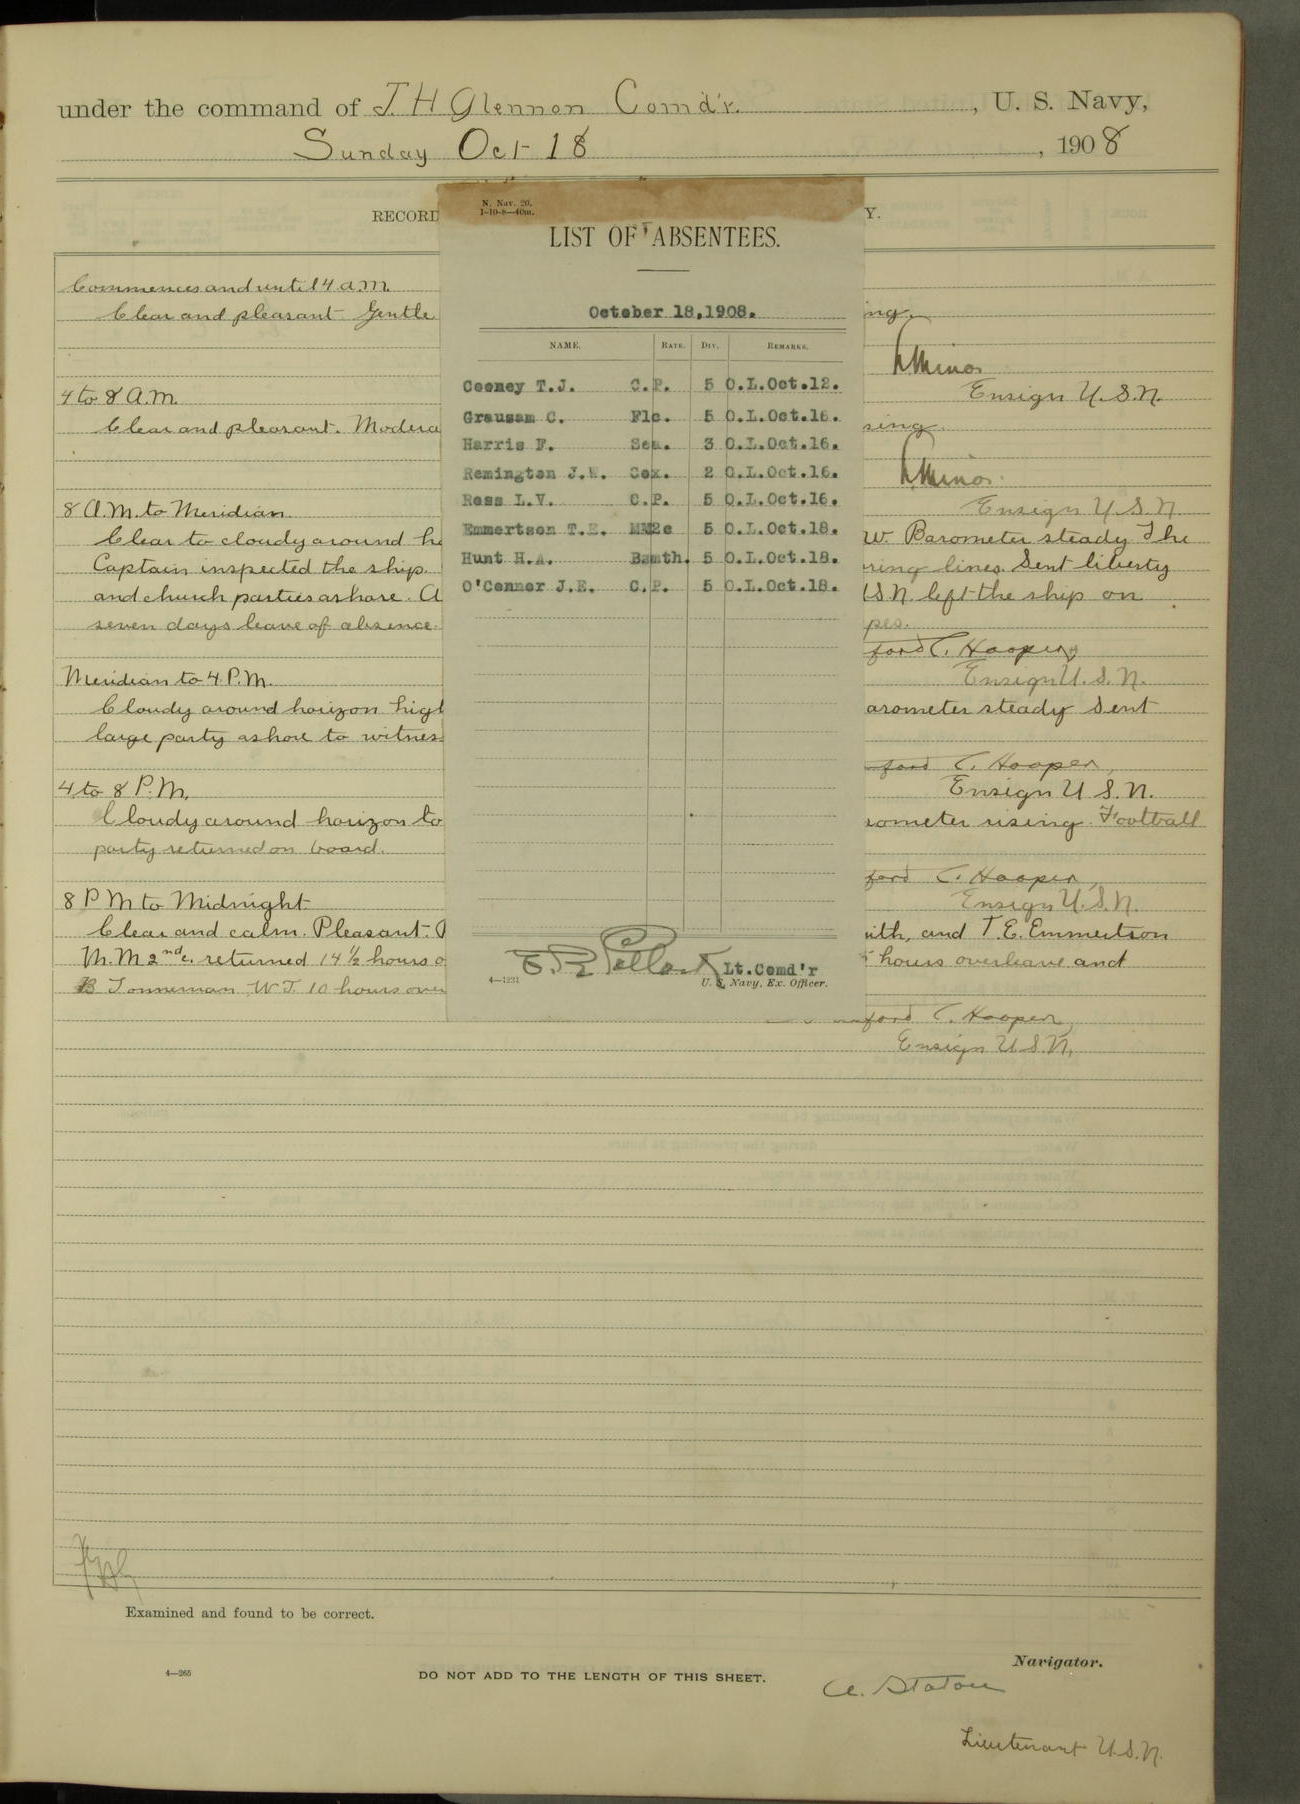 under the command of J. H. Glennon Comd'r. , U. S. Navy,
Sunday Oct 18 , 1908
RECORD
N. Nav. 20.
1-10-8—40m.
Y.
LIST OF ABSENTEES.
October 18,1908.
NAME. RATE. DIV. REMARKS.
Cooney T.J. C.P. 5 O.L.Oct.12.
Grausam C. F1c. 5 O.L.Oct.16.
Harris F. Sea. 3 O.L.Oct.16.
Remington J.W. Cox. 2 O.L.Oct.16.
Ross L.V. C.P. 5 O.L.Oct.16.
Emmertson T.E. MM2c 5 O.L.Oct.18.
Hunt H.A. Bsmth. 5 O.L.Oct.18.
O'Conner J.E. C.P. 5 O.L.Oct.18.
Lt.Comd'r
4—1231 U. S. Navy, Ex. Officer.
Commences and until 4 a.m.
Clear and pleasant Gentle ng.
Minor
4 to 8 A.M. Ensign U.S.N.
Clear and pleasant. Modera sing
Minor
8 A.M. to Meridian Ensign U.S.N.
Clear to cloudy around ho W. Barometer steady The
Captain inspected the ship. ring lines. Sent liberty
and church parties ashore. A USN. left the ship on
seven days leave of absence pes.
ford C. Hooper,
Meridian to 4 P.M. Ensign U.S.N.
Cloudy around horizon high arometer steady Sent
large party ashore to witness
ford C. Hooper,
4 to 8 P.M. Ensign U.S.N.
Cloudy around horizon to rometer rising. Football
party returned on board.
ford C. Hooper,
8 P M to Midnight Ensign U.S.N.
Clear and calm. Pleasant. ith, and T.E. Emmertson
M.M 2nd c. returned 14½ hours o hours overleave and
B Tonneman W.T. 10 hours over
ford C. Hooper,
Ensign U.S.N.
Examined and found to be correct.
4—265 DO NOT ADD TO THE LENGTH OF THIS SHEET. Navigator.
A. Staton
Lieutenant U.S.N.